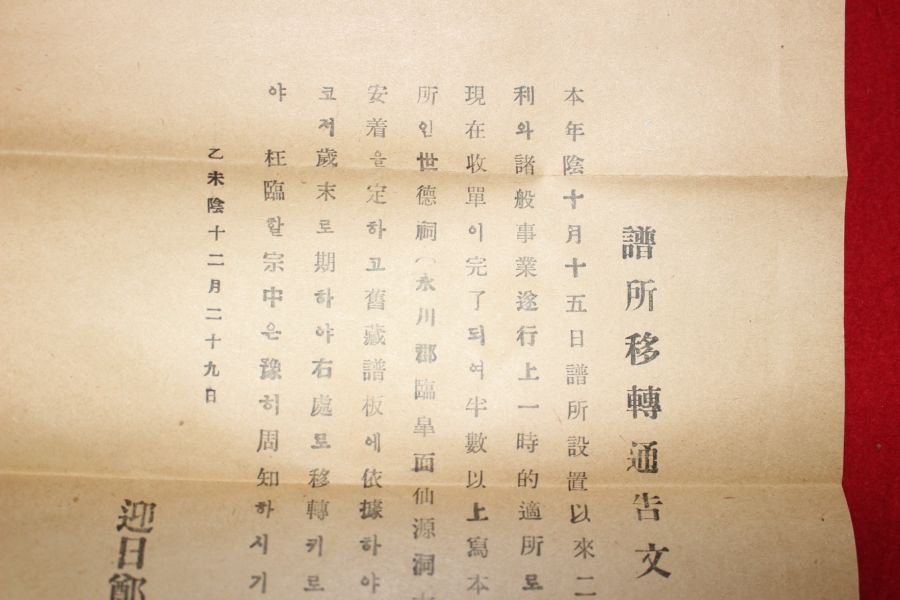 譜所移轉通告文
本年陰十月十五日譜所設置以來二
利와諸般事業遂行上一時的適所로
現在收單이完了되여半數以上寫本
所인世德祠(永川郡臨皐面仙源洞
安着을定하고舊藏譜板에依據하야
코저歲末로期하야右處로移轉키로
야 枉臨할宗中은豫히周知하시기
乙未陰十二月二十九日
迎日鄭